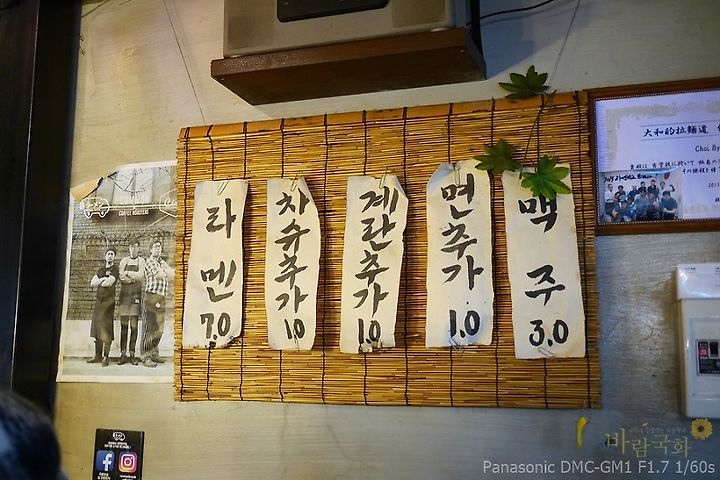 라멘
7.0
차슈추가
1.0
계란추가
1.0
면추가
1.0
맥주
3.0
COFFEE ROASTERS
大和的拉麺道
Choi By
바람국화
Panasonic DMC-GM1 F1.7 1/60s